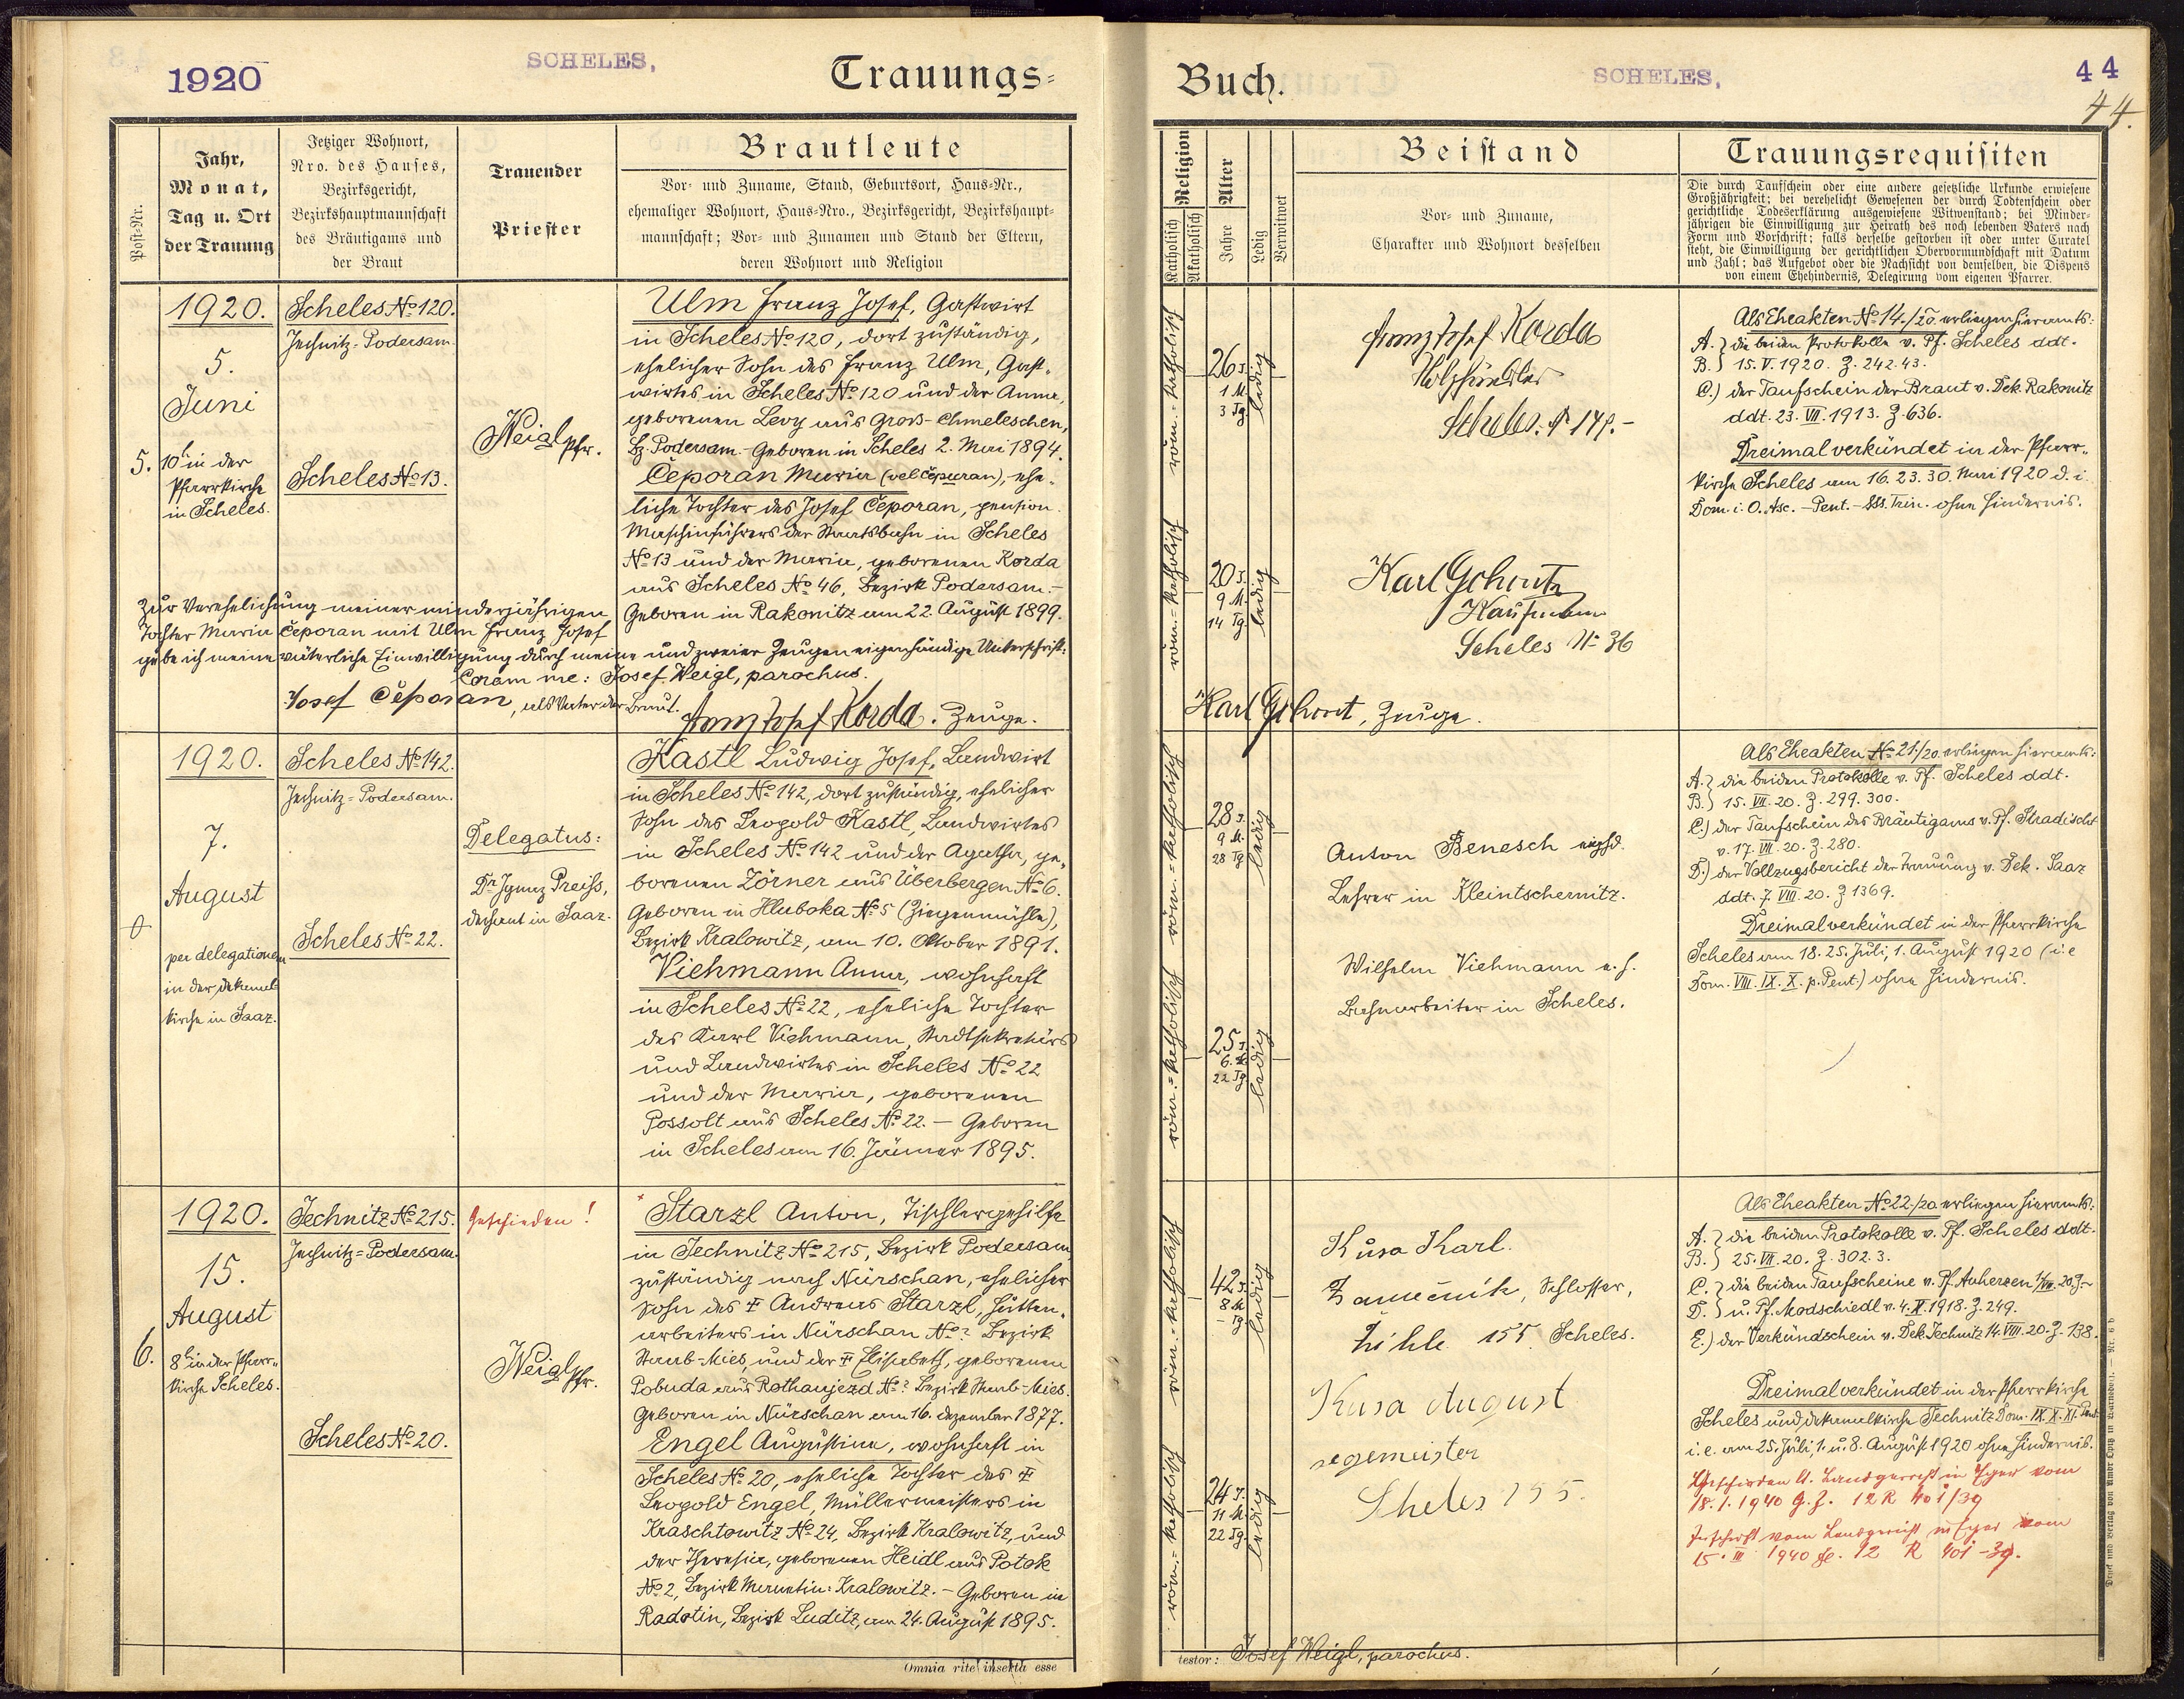 1920
SCHELES,
Trauungs-
Post-Nr.
Jahr,
Monat,
Tag u. Ort
der Trauung
Jetziger Wohnort,
Nro. des Hauses,
Bezirksgericht,
Bezirkshauptmannschaft
des Bräutigams und
der Braut
Trauender
Priester
Brautleute
Vor- und Zuname, Stand, Geburtsort, Haus-Nr.,
ehemaliger Wohnort, Haus-Nro., Bezirksgericht, Bezirkshaupt-
mannschaft; Vor- und Zunamen und Stand der Eltern,
deren Wohnort und Religion
5.
1920.
5.
Juni
10h in der
Pfarrkirche
in Scheles.
Scheles No 120.
Jechnitz-Podersam.
Scheles No 13.
Weigl Pfr.
Ulm Franz Josef, Gastwirt
in Scheles No 120, dort zuständig,
ehelicher Sohn des Franz Ulm, Gast-
wirtes in Scheles No 120 und der Anna,
geborenen Levy aus Gross-Chmeleschen,
Bz. Podersam. - Geboren in Scheles 2. Mai 1894.
Čeporan Maria (vel Čepuran), ehe-
liche Tochter des Josef Čeporan, pension.
Maschinführers der Staatsbahn in Scheles
No 13 und der Maria, geborenen Korda
aus Scheles No 46, Bezirk Podersam. -
Geboren in Rakonitz am 22. August 1899.
Zur Verehelichung meiner minderjährigen
Tochter Maria Čeporan mit Ulm Franz Josef
gebe ich meine väterliche Einwilligung durch meine und zweier Zeugen eigenhändige Unterschrift:
Coram me: Josef Weigl, parochus.
Josef Čeporan, als Vater der Braut.
Franz Josef Korda. Zeuge.
1920.
7.
August
per delegationem
in der Dekanal-
kirche in Saaz.
Scheles No 142.
Jechnitz-Podersam.
Scheles No 22.
Delegatus:
Dr Ignaz Preiss,
Dechant in Saaz.
Kastl Ludwig Josef, Landwirt
in Scheles No 142, dort zuständig, ehelicher
Sohn des Leopold Kastl, Landwirtes
in Scheles No 142 und der Agatha, ge-
borenen Zörner aus Überbergen No 6.
Geboren in Hluboka No 5 (Ziegenmühle),
Bezirk Kralowitz, am 10. Oktober 1891.
Viehmann Anna, wohnhaft
in Scheles No 22, eheliche Tochter
des Karl Viehmann, Stadtsekretärs
und Landwirtes in Scheles No 22
und der Maria, geborenen
Possolt aus Scheles No 22. - Geboren
in Scheles am 16. Jänner 1895.
6.
1920.
15.
August
8h in der Pfarr-
kirche Scheles.
Jechnitz No 215.
Jechnitz-Podersam.
Scheles No 20.
Geschieden!
Weigl Pfr.
Starzl Anton, Tischlergehilfe
in Jechnitz No 215, Bezirk Podersam,
zuständig nach Nürschan, ehelicher
Sohn des † Andreas Starzl, Hütten-
arbeiters in Nürschan No ? Bezirk
Staab-Mies, und der † Elisabeth, geborenen
Pobuda aus Rothaujezd No ? Bezirk Staab-Mies.
Geboren in Nürschan am 16. Dezember 1877.
Engel Augustina, wohnhaft in
Scheles No 20, eheliche Tochter des †
Leopold Engel, Müllermeisters in
Kraschtowitz No 24, Bezirk Kralowitz, und
der Theresia, geborenen Heidl aus Potok
No 2, Bezirk Manetin-Kralowitz. - Geboren in
Radotin, Bezirk Luditz, am 24. August 1895.
Omnia rite inserta esse
Buch.
SCHELES,
44
44.
Religion
Katholisch
Akatholisch
Alter
Jahre
Ledig
Verwitwet
Beistand
Vor- und Zuname,
Charakter und Wohnort desselben
Trauungsrequisiten
Die durch Taufschein oder eine andere gesetzliche Urkunde erwiesene
Großjährigkeit; bei verehelicht Gewesenen der durch Todtenschein oder
gerichtliche Todeserklärung ausgewiesene Witwenstand; bei Minder-
jährigen die Einwilligung zur Heirath des noch lebenden Vaters nach
Form und Vorschrift; falls derselbe gestorben ist oder unter Curatel
steht, die Einwilligung der gerichtlichen Obervormundschaft mit Datum
und Zahl; das Aufgebot oder die Nachsicht von demselben, die Dispens
von einem Ehehindernis, Delegirung vom eigenen Pfarrer.
röm.-katholisch
26 J.
1 M.
3 Tg.
ledig
röm.-katholisch
20 J.
9 M.
14 Tg.
ledig
Franz Josef Korda
Holzhändler
Scheles. No 149.-
Karl Gehirt
Kaufmann
Scheles No 36
Karl Gehirt, Zeuge.
Als Eheakten No 14./20. erliegen hieramts:
A. } die beiden Protokolle v. Pf. Scheles ddt.
B. } 15. V. 1920. Z. 242.43.
C.) der Taufschein der Braut v. Dek. Rakonitz
ddt. 23. VII. 1913. Z. 636.
Dreimal verkündet in der Pfarr-
kirche Scheles am 16. 23. 30. Mai 1920 d. i.
Dom. i. O. Asc. - Pent. - SSs. Trin. ohne Hindernis.
röm.-katholisch
28 J.
9 M.
28 Tg.
ledig
röm.-katholisch
25 J.
6 M.
22 Tg.
ledig
Anton Benesch
Lehrer in Kleintschernitz.
Wilhelm Viehmann
Bahnarbeiter in Scheles.
Als Eheakten No 21./20. erliegen hieramts:
A. } die beiden Protokolle v. Pf. Scheles ddt.
B. } 15. VII. 20. Z. 299. 300.
C.) der Taufschein des Bräutigams v. Pf. Hradischt
v. 17. VII. 20. Z. 280.
D.) der Vollzugsbericht der Trauung v. Dek. Saaz
ddt. 7. VIII. 20. Z 1369.
Dreimal verkündet in der Pfarrkirche
Scheles am 18. 25. Juli, 1. August 1920 (i. e
Dom. VIII. IX. X. p. Pent.) ohne Hindernis.
röm.-katholisch
42 J.
8 M.
- Tg.
ledig
röm.-katholisch
24 J.
11 M.
22 Tg.
ledig
Kusa Karl.
Zamečnik, Schlosser,
Žihle 155 Scheles.
Kusa August
Scheles 155.
Als Eheakten No 22./20 erliegen hieramts:
A. } die beiden Protokolle v. Pf. Scheles ddt.
B. } 25. VII. 20. Z. 302.3.
C. } die beiden Taufscheine v. Pf. Auherzen
D. } u. Pf. Modschiedl v. 4. X. 1918. Z. 249.
E.) der Verkündschein v. Dek. Jechnitz 14. VIII. 20. Z. 138.
Dreimal verkündet in der Pfarrkirche
Scheles und Dekanalkirche Jechnitz Dom. IX. X. XI. Pent.
i. e. am 25. Juli, 1. u. 8. August 1920 ohne Hindernis.
Geschieden lt. Landgericht in Eger vom
18. 1. 1940 G. Z. 12 R 401/39
Zuschrift vom Landgericht in Eger vom
15. III 1940 12 R 401-39.
testor: Josef Weigl, parochus.